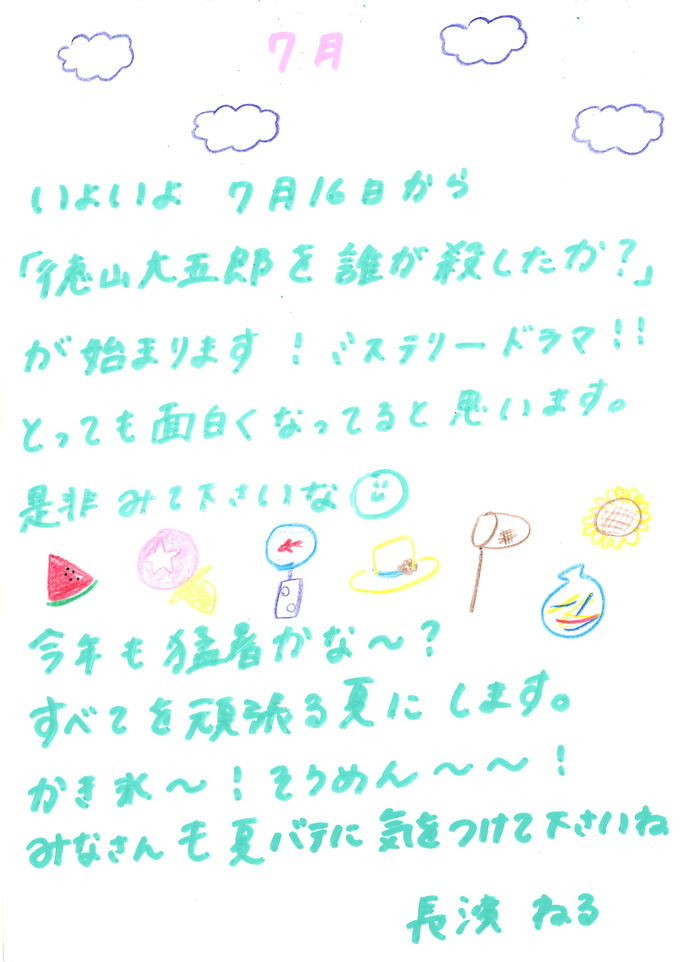 7月
いよいよ 7月16日から
「徳山大五郎を誰が殺したか?」
が始まります!ミステリードラマ!!
とっても面白くなってると思います。
是非みて下さいな
今年も猛暑かな〜?
すべてを頑張る夏にします。
かき氷〜!そうめん〜〜!
みなさんも夏バテに気をつけて下さいね
長濱 ねる